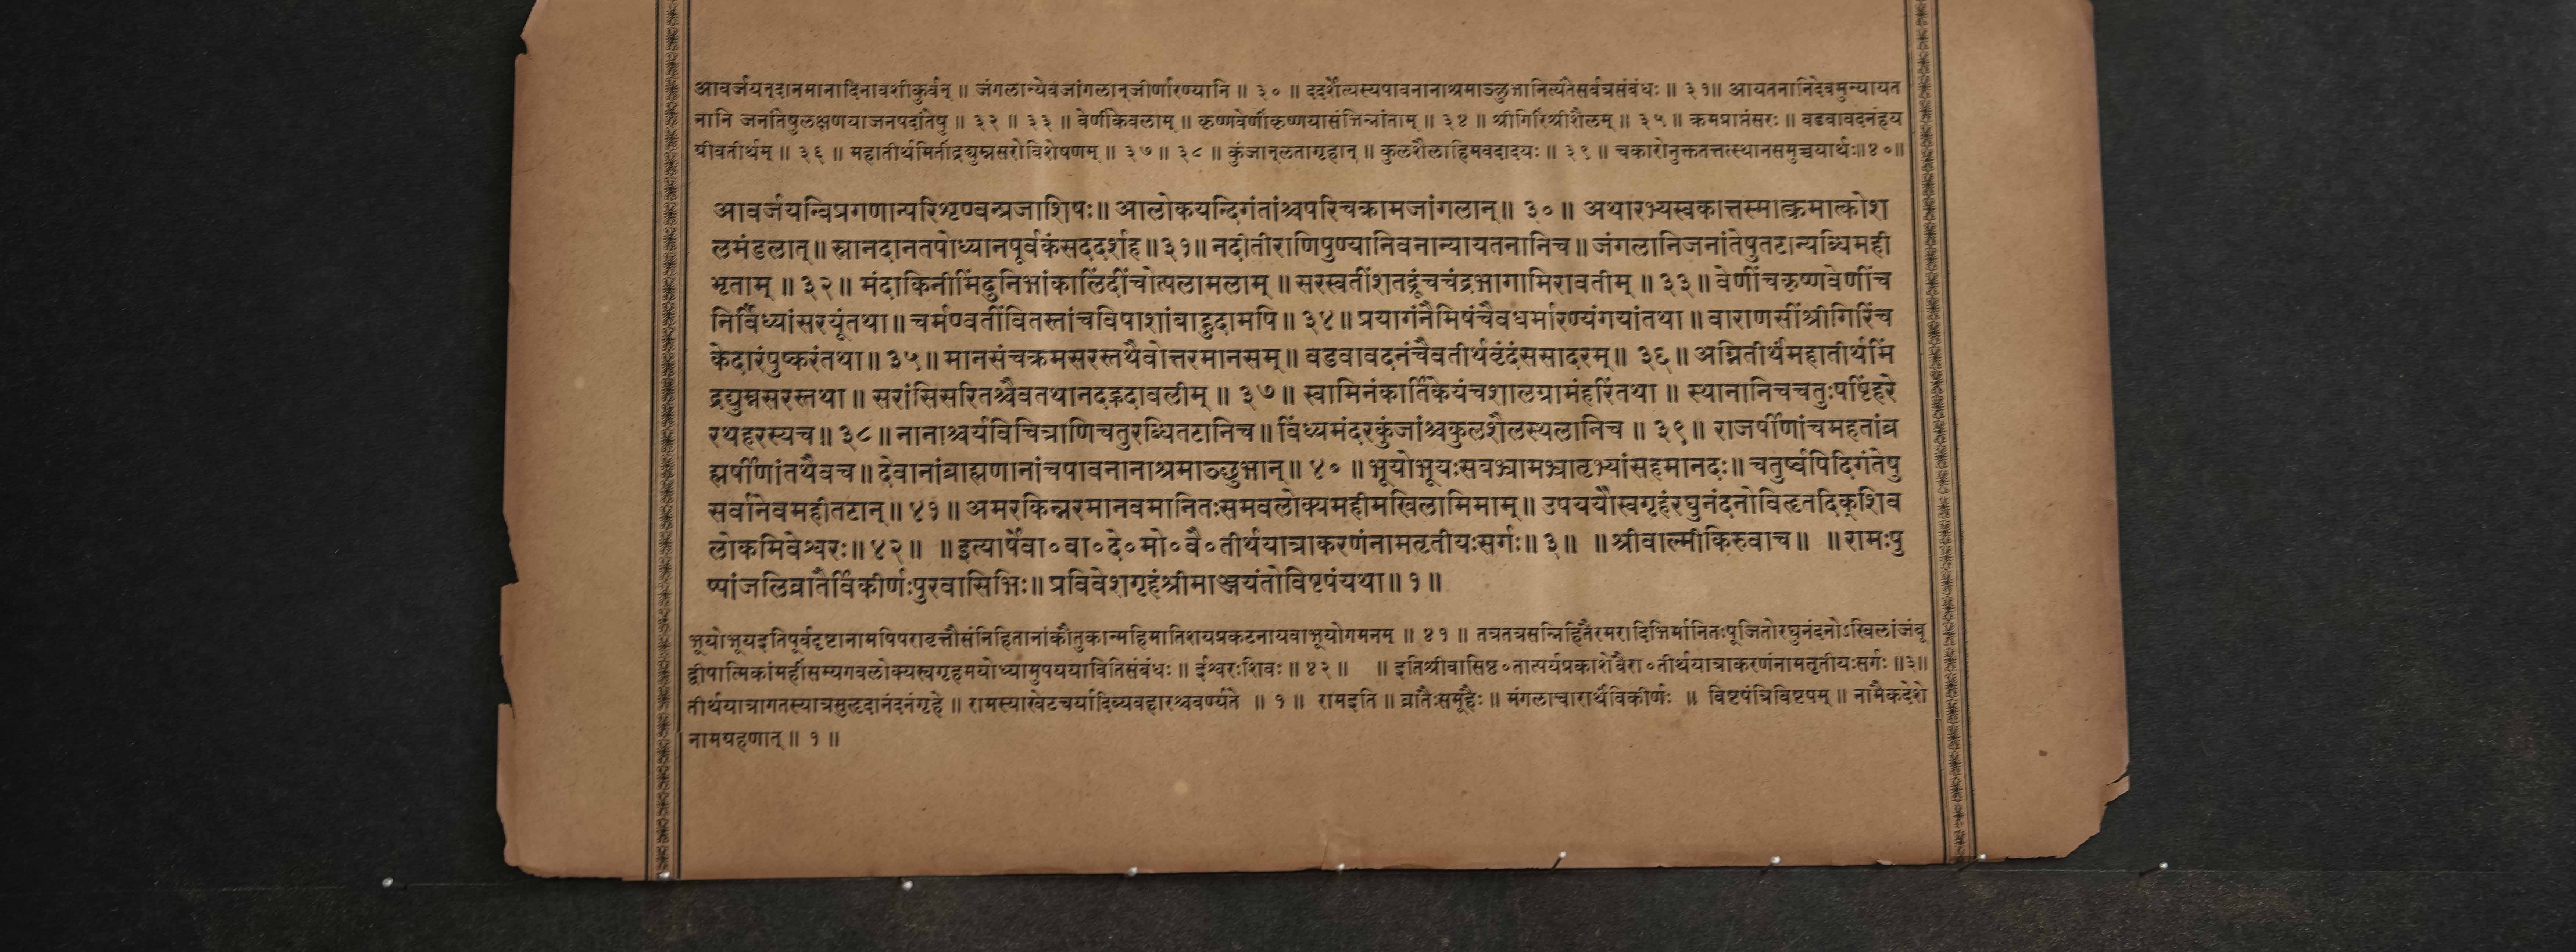 आवर्जयन्दानमानादिनावशीकुर्वन् ॥ जंगलान्येवजांगलान्जीर्णारण्यानि ॥ ३० ॥ ददर्शेत्यस्यपावनानाश्रमाञ्छुभानित्यंतेसर्वत्रसंबंधः ॥ ३१॥ आयतनानिदेवमुन्यायत
नानि जनांतेषुलक्षणयाजनपदांतेषु ॥ ३२ ॥ ३३ ॥ वेणींकेवलाम् ॥ कृष्णवेणींकृष्णयासंभिन्नांताम् ॥ ३४ ॥ श्रीगिरिंश्रीशैलम् ॥ ३५ ॥ क्रमप्राप्तंसरः ॥ वडवावदनंहय
ग्रीवतीर्थम् ॥ ३६ ॥ महातीर्थमितींद्रद्युम्नसरोविशेषणम् ॥ ३७ ॥ ३८ ॥ कुंजान्लतागृहान् ॥ कुलशैलाहिमवदादयः ॥ ३९ ॥ चकारोनुक्ततत्तत्स्थानसमुच्चयार्थः॥४०॥
आवर्जयन्विप्रगणान्परिशृण्वन्प्रजाशिषः॥ आलोकयन्दिगंतांश्चपरिचक्रामजांगलान्॥ ३० ॥ अथारभ्यस्वकात्तस्मात्क्रमात्कोश
लमंडलात्॥ स्नानदानतपोध्यानपूर्वकंसददर्शह॥३१॥ नदीतीराणिपुण्यानिवनान्यायतनानिच॥ जंगलानिजनांतेषुतटान्यब्धिमही
भृताम् ॥ ३२॥ मंदाकिनीमिंदुनिभांकालिंदींचोत्पलामलाम् ॥ सरस्वतींशतद्रूंचचंद्रभागामिरावतीम् ॥ ३३॥ वेणींचकृष्णवेणींच
निर्विंध्यांसरयूंतथा॥ चर्मण्वतींवितस्तांचविपाशांबाहुदामपि॥ ३४॥ प्रयागंनैमिषंचैवधर्मारण्यंगयांतथा॥ वाराणसींश्रीगिरिंच
केदारंपुष्करंतथा॥ ३५॥ मानसंचक्रमसरस्तथैवोत्तरमानसम्॥ वडवावदनंचैवतीर्थवृंदंससादरम्॥ ३६॥ अग्नितीर्थंमहातीर्थमिं
द्रद्युम्नसरस्तथा॥ सरांसिसरितश्चैवतथानदह्रदावलीम् ॥ ३७॥ स्वामिनंकार्तिकेयंचशालग्रामंहरिंतथा ॥ स्थानानिचचतुःषष्टिंहरे
रथहरस्यच॥ ३८॥ नानाश्चर्यविचित्राणिचतुरब्धितटानिच॥ विंध्यमंदरकुंजांश्चकुलशैलस्थलानिच ॥ ३९॥ राजर्षीणांचमहतांब्र
ह्मर्षीणांतथैवच॥ देवानांब्राह्मणानांचपावनानाश्रमाञ्छुभान्॥ ४० ॥ भूयोभूयःसबभ्रामभ्रातृभ्यांसहमानदः॥ चतुर्ष्वपिदिगंतेषु
सर्वानेवमहीतटान्॥ ४१॥ अमरकिन्नरमानवमानितःसमवलोक्यमहीमखिलामिमाम्॥ उपययौस्वगृहंरघुनंदनोविहृतदिक्शिव
लोकमिवेश्वरः॥ ४२॥ ॥ इत्यार्षेवा०वा०दे०मो०वै०तीर्थयात्राकरणंनामतृतीयःसर्गः॥ ३॥ ॥ श्रीवाल्मीकिरुवाच॥ ॥ रामःपु
ष्पांजलिव्रातैर्विकीर्णःपुरवासिभिः॥ प्रविवेशगृहंश्रीमाञ्जयंतोविष्टपंयथा॥ १॥
भूयोभूयइतिपूर्वदृष्टानामपिपरावृत्तौसंनिहितानांकौतुकान्महिमातिशयप्रकटनायवाभूयोगमनम् ॥ ४१ ॥ तत्रतत्रसन्निहितैरमरादिभिर्मानितःपूजितोरघुनंदनोऽखिलांजंबू
द्वीपात्मिकांमहींसम्यगवलोक्यस्वगृहमयोध्यामुपययावितिसंबंधः ॥ ईश्वरःशिवः ॥ ४२ ॥ ॥ इतिश्रीवासिष्ठ०तात्पर्यप्रकाशेवैरा०तीर्थयात्राकरणंनामतृतीयःसर्गः ॥३॥
तीर्थयात्रागतस्यात्रसुहृदानंदनंगृहे ॥ रामस्याखेटचर्यादिव्यवहारश्चवर्ण्यते ॥ १ ॥ रामइति ॥ व्रातैःसमूहैः ॥ मंगलाचारार्थंविकीर्णः ॥ विष्टपंत्रिविष्टपम् ॥ नामैकदेशे
नामग्रहणात् ॥ १ ॥